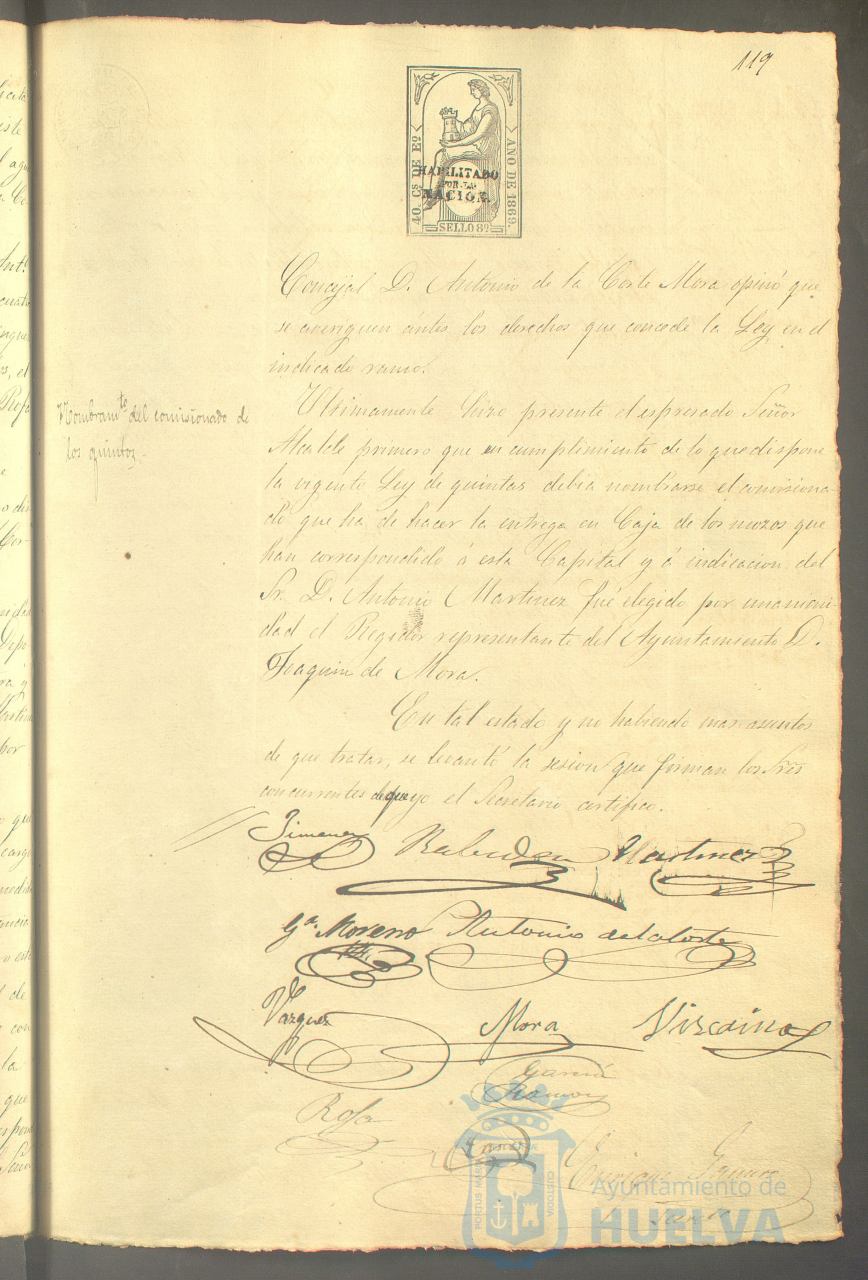 119
40. Cs DE Eº
AÑO DE 1869.
HABILITADO
POR LA
NACION.
SELLO 8º
Concejal D. Antonio de la Corte Mora opinó que
se averiguen ántes los derechos que concede la Ley en el
indicado ramo.
Nombramto. del comisionado de
los quintos.
Ultimamente hizo presente el espresado Señor
Alcalde primero que en cumplimiento de lo que dispone
la vigente Ley de quintas debia nombrarse el comisiona-
do que ha de hacer la entrega en Caja de los mozos que
han correspondido á esta Capital y á indicacion del
Sr. D. Antonio Martinez fué elegido por unanimi-
dad el Regidor representante del Ayuntamiento D.
Joaquin de Mora.
En tal estado y no habiendo mas asuntos
de que tratar, se levantó la sesion que firman los Sres
concurrentes de que yo el Secretario certifico.
Jimenez
Martinez
Ga. Moreno Antonio de la Corte
Vazquez Mora Vizcaino
Garcia
Ramos
Rofa
PORTUS MARIS
CUSTODIA
Ayuntamiento de
HUELVA